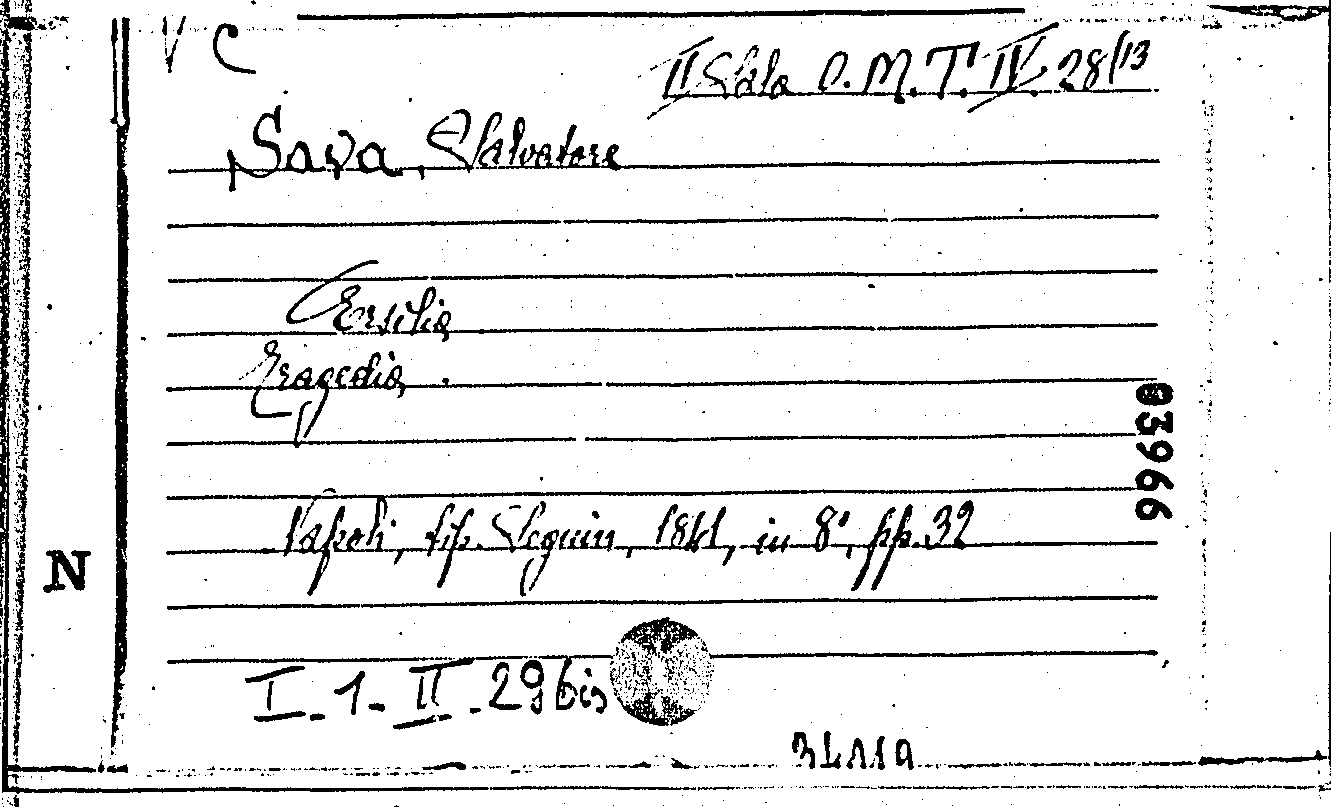 V C
II Sala O. M. T. IV. 28/13
Sava, Salvatore
Ersilia
Tragedia.
03966
Napoli, tip. Seguin, 1841, in 8°, pp. 32
N
I-1-II-29 bis